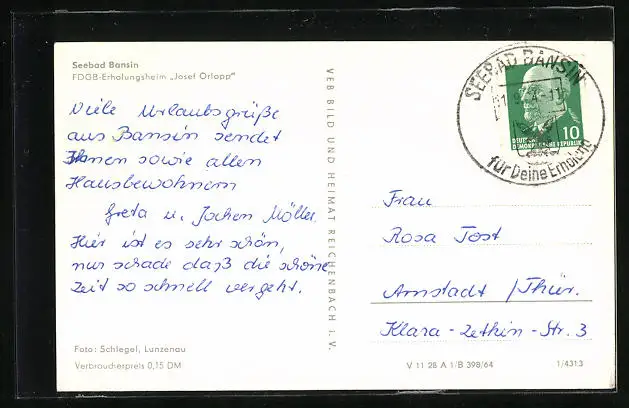 Seebad Bansin
FDGB-Erholungsheim „Josef Orlopp"
Viele Urlaubsgrüße
aus Bansin sendet
Ihnen sowie allen
Hausbewohnern
Greta u. Jochen Möller.
Hier ist es sehr schön,
nur schade daß die schöne
Zeit so schnell vergeht.
Foto: Schlegel, Lunzenau
Verbraucherpreis 0,15 DM
VEB BILD UND HEIMAT REICHENBACH I. V.
SEEBAD BANSIN
für Deine Erholung
10
DEUTSCHE
DEMOKRATISCHE REPUBLIK
Frau
Rosa Tost
Arnstadt /Thür.
Klara-Zethin-Str. 3
V 11 28 A 1/B 398/64
1/4313